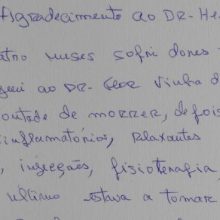 Agradecimento ao DR- He
atro meses sofri dores
ao DR- Cear Vinha d
ontade de morrer, depois
inflamatórios, Relaxantes
, injeções, fisioterapia,
ultimo estava a tomar